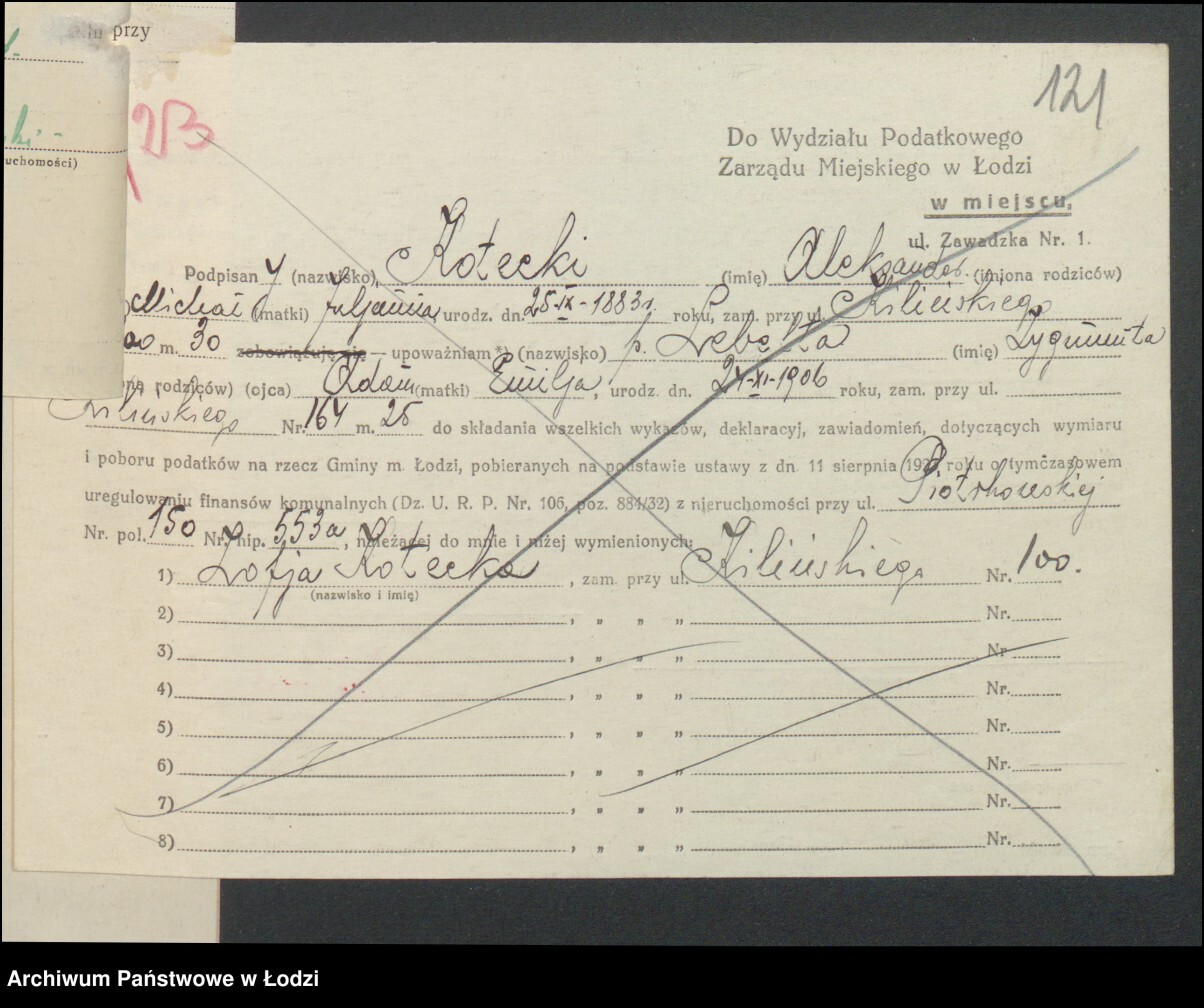 przy
uchomości)
121
Do Wydziału Podatkowego
Zarządu Miejskiego w Łodzi
w miejscu,
ul. Zawadzka Nr. 1.
Podpisany (nazwisko) Kotecki (imię) Aleksander (imiona rodziców)
Michał (matki) Juljanna urodz. dn. 25-IX-1883 r. roku, zam. przy ul. Kilińskiego
m. 30 zobowiązuję się — upoważniam *) (nazwisko) p. Lebelta (imię) Zygmunta
rodziców) (ojca) Adam (matki) Emilja, urodz. dn. 24-XI-1906 roku, zam. przy ul.
Kilińskiego Nr. 164 m. 25 do składania wszelkich wykazów, deklaracyj, zawiadomień, dotyczących wymiaru
i poboru podatków na rzecz Gminy m. Łodzi, pobieranych na podstawie ustawy z dn. 11 sierpnia roku o tymczasowem
uregulowaniu finansów komunalnych (Dz. U. R. P. Nr. 106, poz. 884/32) z nieruchomości przy ul. Piotrkowskiej
Nr. pol. 150 Nr. hip. 553a, należącej do mnie i niżej wymienionych:
1) Zofja Kotecka, zam. przy ul. Kilińskiego Nr. 100.
(nazwisko i imię)
2) , „ „ „ Nr.
3) , „ „ „ Nr.
4) , „ „ „ Nr.
5) , „ „ „ Nr.
6) , „ „ „ Nr.
7) , „ „ „ Nr.
8) , „ „ „ Nr.
Archiwum Państwowe w Łodzi